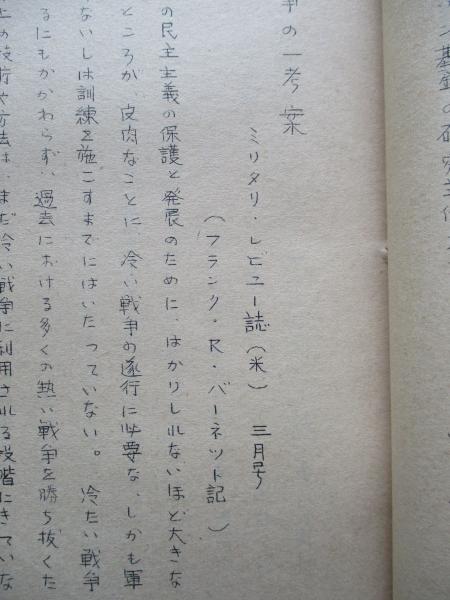 基金の研究主
争の一考案
ミリタリ・レビュー誌(米) 三月号
(フランク・R・バーネット記)
の民主主義の保護と発展のために、はかりしれないほど大きな
ところが、皮肉なことに、冷い戦争の遂行に必要な、しかも軍
ないしは訓練を施こすまでにはいたっていない。 冷たい戦争
るにもかかわらず、過去における多くの熱い戦争を勝ち抜くた
上の技術や方法は、まだ冷い戦争に利用される段階にきていな